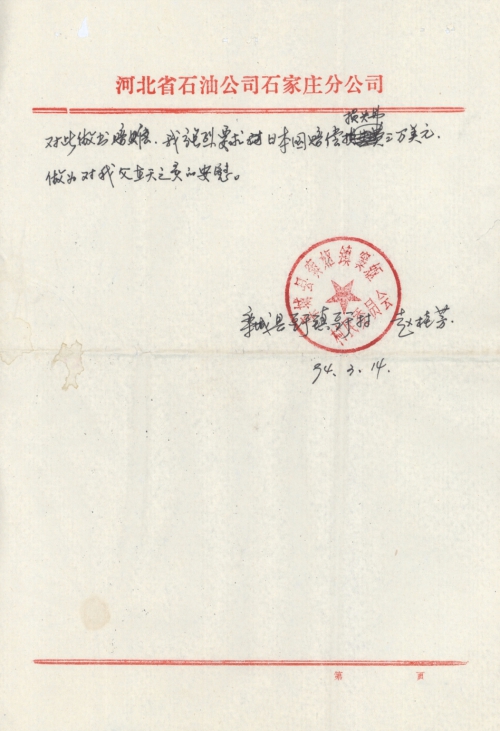 河北省石油公司石家庄分公司
损失费
对此做出赔偿，我强烈要求对日本国赔偿三万美元，
做为对我父在天之灵的安慰。
栾城县镇村 赵桂芳
94.3.14.
第 页